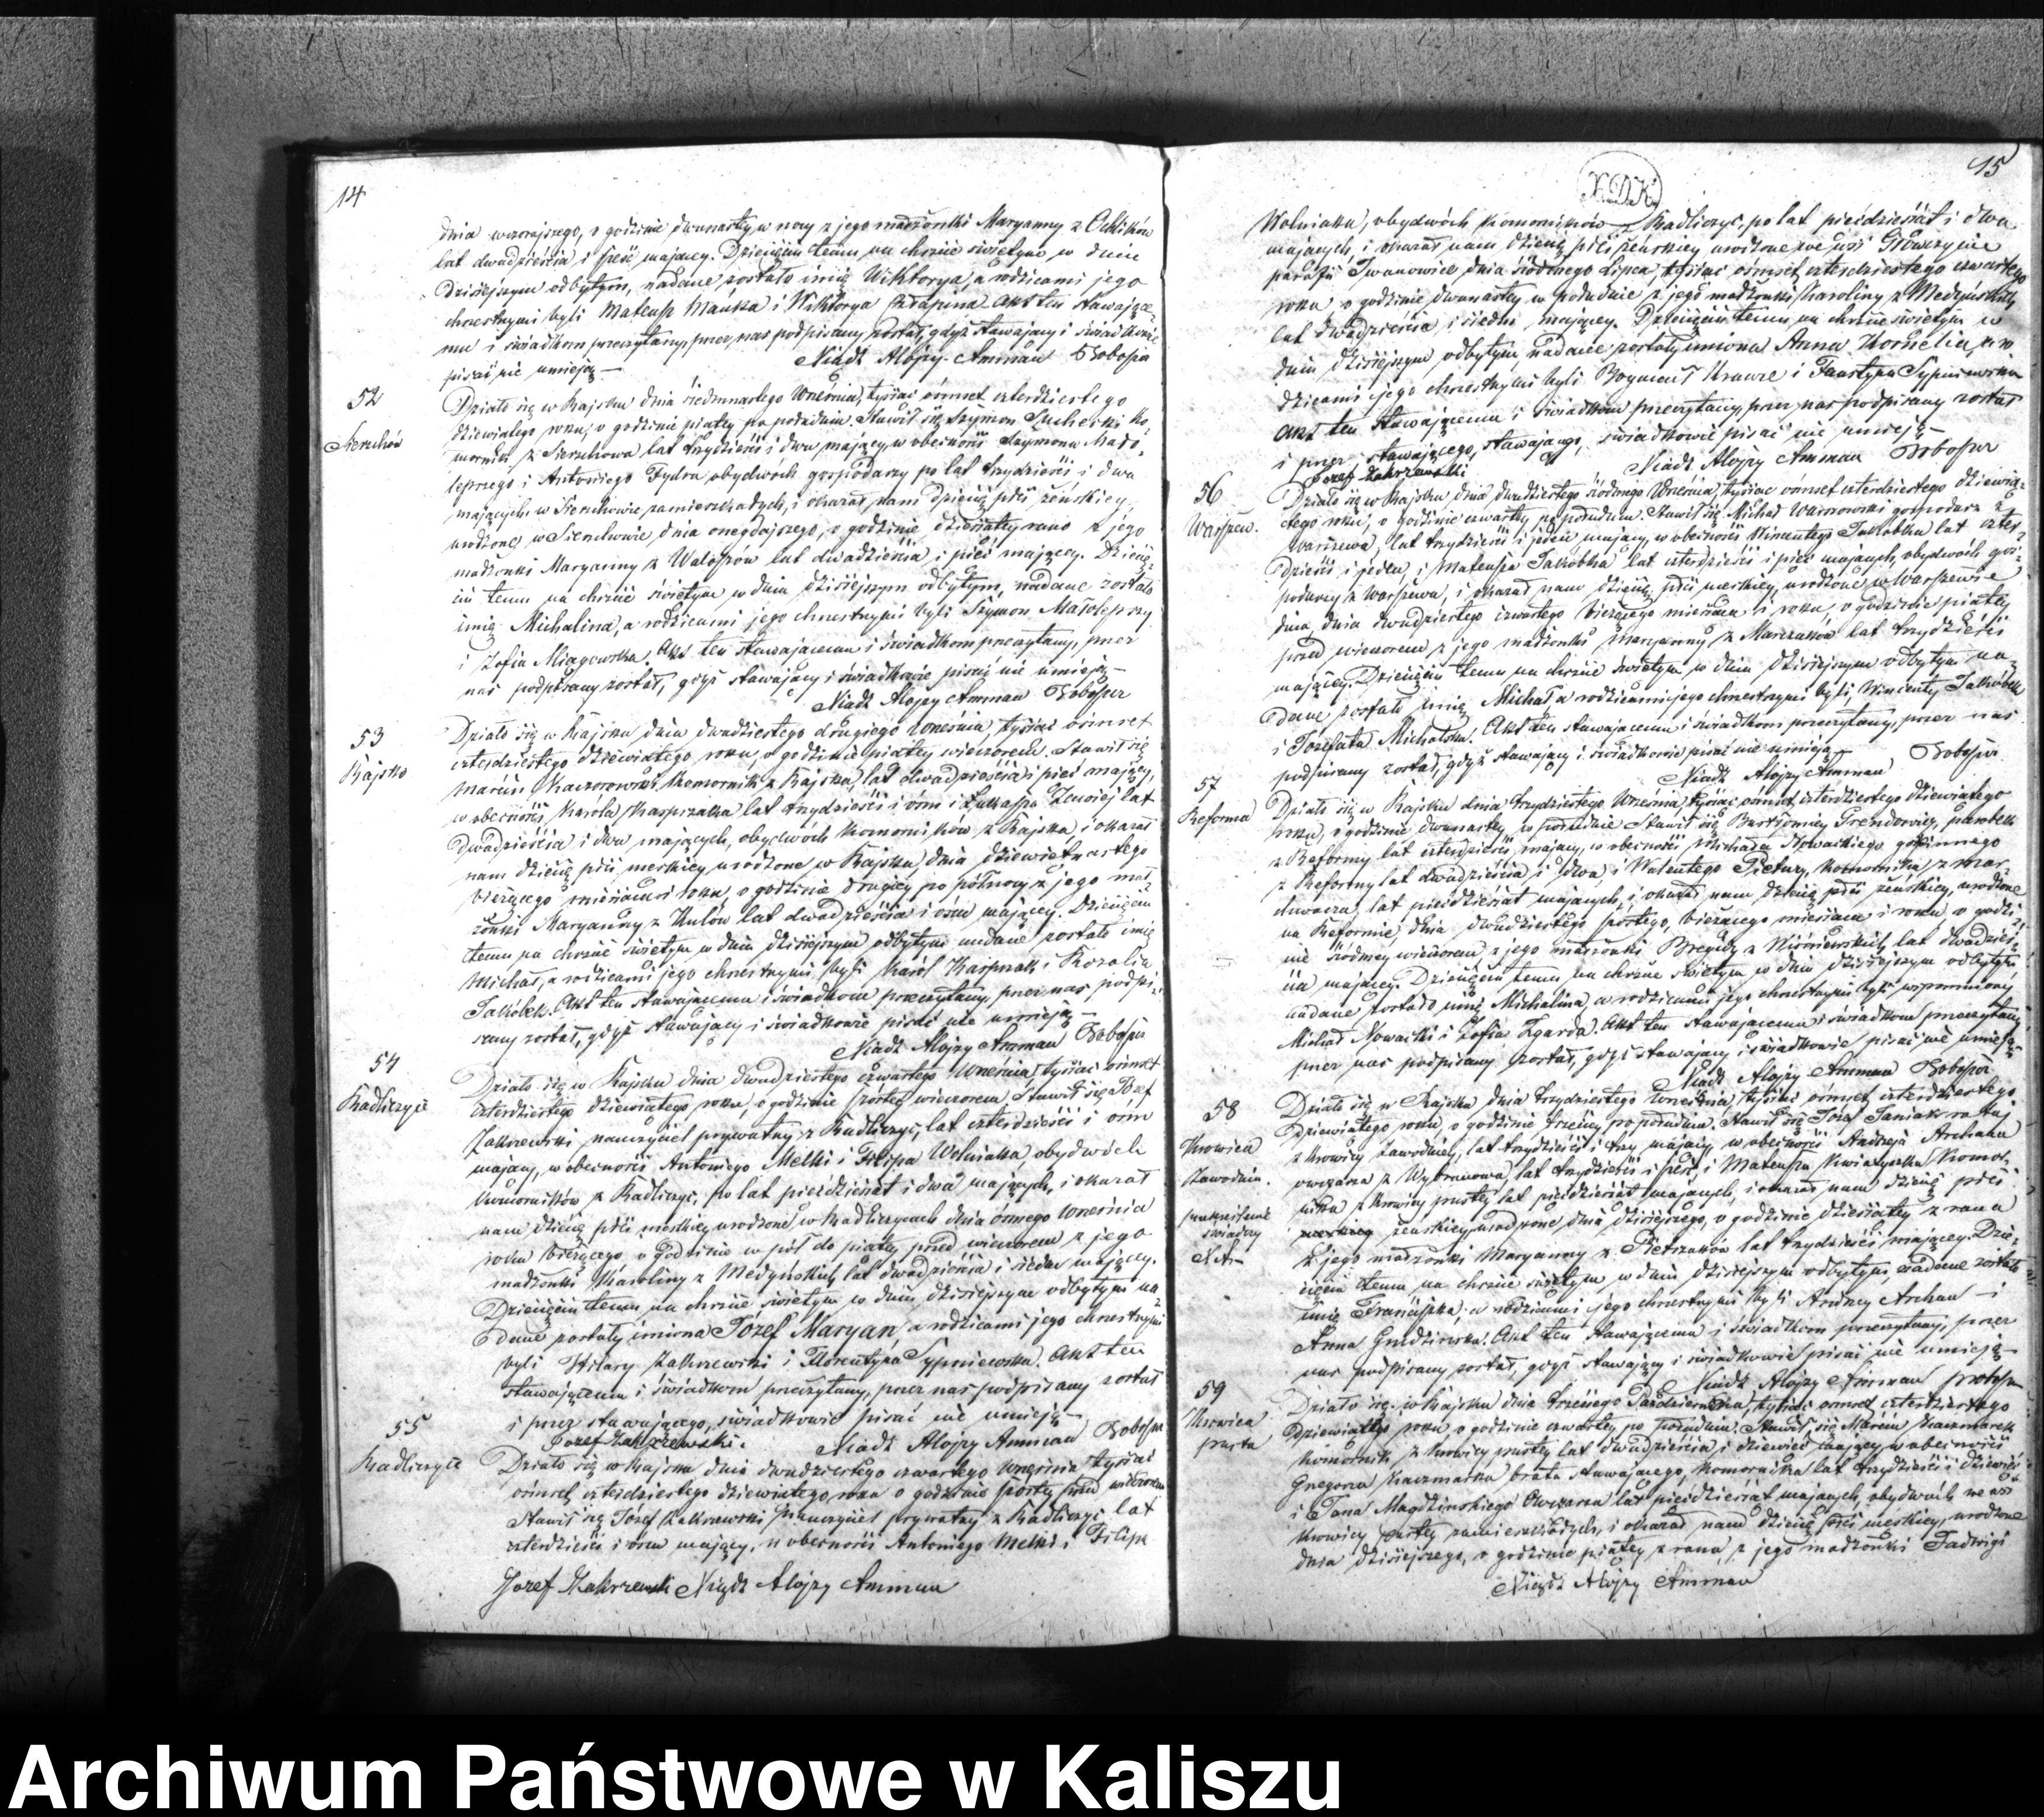 14
dnia wczorajszego, o godzinie dwunastey w nocy z jego małżonki Maryanny z
lat dwadzieścia i sześć maiącey. Dziecięciu temu na chrzcie świętym w dniu
dzisiejszym odbytym, nadane zostało imię Wiktorya, a rodzicami jego
chrzestnymi byli Mateusz i Wiktorya Akt ten stawające-
mu i świadkom przeczytany, przez nas podpisany został, gdyż stawający i świadkowie
pisać nie umieją —
Xiądz Alojzy Amman Proboszcz
52
Sierzchów
Działo się w Rajsku dnia siedmnastego Września, tysiąc ośmset czterdziestego
dziewiątego roku, o godzinie piątey po południu. Stawił się Szymon Ko-
mornik z Sierzchowa lat trzydzieści i dwa maiący, w obecności Szymona Mało-
lepszego i Antoniego Fydra obydwóch gospodarzy po lat trzydzieści i dwa
maiących w Sierzchowie zamieszkałych, i okazał nam dziecię płci żeńskiey
urodzone w Sierzchowie dnia onegdajszego, o godzinie dziesiątey rano z jego
małżonki Maryanny z lat dwadzieścia i pięć maiącey. Dziecię-
ciu temu na chrzcie świętym w dniu dzisiejszym odbytym, nadane zostało
imię Michalina, a rodzicami jego chrzestnymi byli Szymon Małolepszy
i Zofia Akt ten stawaiącemu i świadkom przeczytany, przez
nas podpisany został, gdyż stawaiący i świadkowie pisać nie umieją —
Xiądz Alojzy Amman Proboszcz
53
Rajsko
Działo się w Rajsku dnia dwudziestego drugiego Września, tysiąc ośmset
czterdziestego dziewiątego roku, o godzinie piątey wieczorem. Stawił się
Marcin Kaczorowski, Komornik z Rajska, lat dwadzieścia i pięć maiący,
w obecności Karola Kasprzaka lat trzydzieści i ośm i Łukasza lat
dwadzieścia i dwa maiących, obydwóch Komorników z Rajska, i okazał
nam dziecię płci męskiey urodzone w Rajsku, dnia dziewiętnastego
bieżącego miesiąca i roku, o godzinie drugiey po północy z jego mał-
żonki Maryanny z lat dwadzieścia i ośm maiącey. Dziecięciu
temu na chrzcie świętym w dniu dzisiejszym odbytym nadane zostało imię
Michał, a rodzicami jego chrzestnymi byli Karol Kasprzak i Rozalia
Jakóbek. Akt ten stawaiącemu i świadkom przeczytany, przez nas podpi-
sany został, gdyż stawaiący i świadkowie pisać nie umieją —
Xiądz Alojzy Amman Proboszcz
54
Radliczyce
Działo się w Rajsku dnia dwudziestego czwartego Września, tysiąc ośmset
czterdziestego dziewiątego roku, o godzinie szóstey wieczorem. Stawił się Józef
Zakrzewski nauczyciel prywatny z Radliczyc, lat czterdzieści i ośm
maiący, w obecności Antoniego Melki i Filipa Wolniaka obydwóch
Komorników z Radliczyc, po lat pięćdziesiąt i dwa maiących, i okazał
nam dziecię płci męskiey urodzone w Radliczycach dnia ósmego Września
roku bieżącego, o godzinie w pół do piątey przed wieczorem z jego
małżonki Karoliny z Medyńskich lat dwadzieścia i siedm maiącey.
Dziecięciu temu na chrzcie świętym w dniu dzisiejszym odbytym na-
dane zostały imiona Józef Maryan, a rodzicami jego chrzestnymi
byli Hilary Zakrzewski i Florentyna Sypniewska. Akt ten
stawaiącemu i świadkom przeczytany, przez nas podpisany został
i przez stawaiącego, świadkowie pisać nie umieją —
Jozef Zakrzewski. Xiądz Alojzy Amman Proboszcz
55
Radliczyce
Działo się w Rajsku dnia dwudziestego czwartego Września tysiąc
ośmset czterdziestego dziewiątego roku o godzinie szóstey przed wieczorem
Stawił się Józef Zakrzewski Nauczyciel prywatny z Radliczyc lat
czterdzieści i ośm maiący, w obecności Antoniego Melki i Filipa
Jozef Zakrzewski Xiądz Alojzy Amman
15
X.D.K.
Wolniaka, obydwóch Komorników z Radliczyc, po lat pięćdziesiąt i dwa
maiących, i okazał nam dziecię płci żeńskiey urodzone we wsi
parafii Iwanowice dnia siódmego Lipca, tysiąc ośmset czterdziestego czwartego
roku, o godzinie dwunastey w południe z jego małżonki Karoliny z Medyńskich
lat dwadzieścia i siedm maiącey. Dziecięciu temu na chrzcie świętym w
dniu dzisiejszym odbytym, nadane zostały imiona Anna Kornelia, a ro-
dzicami jego chrzestnymi byli i Faustyna Sypniewska
Akt ten stawaiącemu i świadkom przeczytany, przez nas podpisany został
i przez stawaiącego, stawaiącego, świadkowie pisać nie umieją —
Jozef Zakrzewski Xiądz Alojzy Amman Proboszcz
56
Warszew.
Działo się w Rajsku dnia dwudziestego siódmego Września, tysiąc ośmset czterdziestego dziewią-
tego roku, o godzinie czwartey po południu. Stawił się Michał gospodarz z
Warszewa, lat trzydzieści i jeden maiący, w obecności Wincentego Jakóbka lat czter-
dzieści i jeden, i Mateusza Jakóbka lat czterdzieści i pięć maiących, obydwóch gos-
podarzy z Warszewa, i okazał nam dziecię płci męskiey, urodzone w Warszewie
dnia, dnia dwudziestego czwartego bieżącego miesiąca i roku, o godzinie piątey
przed wieczorem z jego małżonki Maryanny z Marczaków lat trzydzieści
maiącey. Dziecięciu temu na chrzcie świętym w dniu dzisiejszym odbytym na-
dane zostało imię Michał, a rodzicami jego chrzestnymi byli Wincenty Jakóbek
i Jozefata Michalska. Akt ten stawaiącemu i świadkom przeczytany, przez nas
podpisany został, gdyż stawaiący i świadkowie pisać nie umieją —
Xiądz Alojzy Amman Proboszcz
57
Reforma
Działo się w Rajsku dnia trzydziestego Września, tysiąc ośmset czterdziestego dziewiątego
roku, o godzinie dwunastey w południe Stawił się Bartłomiey parobek
z Reformy lat czterdzieści maiący, w obecności Michała Nowackiego
z Reformy lat dwadzieścia i dwa, i Walentego Komornika z
lat pięćdziesiąt maiących, i okazał nam dziecię płci żeńskiey, urodzone
na Reformie, dnia dwudziestego szóstego, bieżącego miesiąca i roku, o godzi-
nie siódmey wieczorem z jego małżonki Brygidy z lat dwadzieś-
cia maiącey. Dziecięciu temu na chrzcie świętym w dniu dzisiejszym odbytym
nadane zostało imię Michalina, a rodzicami jego chrzestnymi byli wspomniony
Michał Nowacki i Zofia Zgarda. Akt ten stawaiącemu i świadkom przeczytany
przez nas podpisany został, gdyż stawaiący i świadkowie pisać nie umieją —
Xiądz Alojzy Amman Proboszcz
58
Krowica
Zawodnia.
przekreślenie
świadczy
X.A.
Działo się w Rajsku dnia trzydziestego Września, tysiąc ośmset czterdziestego
dziewiątego roku, o godzinie trzeciey po południu. Stawił się Józef Janiak rataj
z Krowicy Zawodniey, lat trzydzieści i trzy maiący, w obecności Andrzeja Archana
owczarza z lat trzydzieści i sześć, i Mateusza Komor-
nika z Krowicy pustey lat pięćdziesiąt maiących, i okazał nam dziecię płci
męskiey żeńskiey, urodzone dnia dzisiejszego, o godzinie dziesiątey z rana
z jego małżonki Maryanny z Pietrzaków lat trzydzieści maiącey. Dzie-
cięciu temu na chrzcie świętym w dniu dzisiejszym odbytym, nadane zostało
imię Franciszka, a rodzicami jego chrzestnymi byli Andrzey Archan i
Anna Akt ten stawaiącemu i świadkom przeczytany, przez
nas podpisany został, gdyż stawaiący i świadkowie pisać nie umieją —
Xiądz Alojzy Amman Proboszcz
59
Krowica
pusta
Działo się w Rajsku dnia trzeciego Października, tysiąc ośmset czterdziestego
dziewiątego roku, o godzinie czwartey po południu. Stawił się Marcin Kaczmarek
Komornik z Krowicy pustey lat dwadzieścia i dziewięć maiący, w obecności
Grzegorza Kaczmarka brata stawaiącego, Komornika lat trzydzieści i dziewięć
i Jana Magdzińskiego Owczarza lat pięćdziesiąt maiących, obydwóch we wsi
Krowicy pustey zamieszkałych, i okazał nam dziecię płci męskiey, urodzone
dnia dzisiejszego, o godzinie piątey z rana, z jego małżonki Jadwigi
Xiądz Alojzy Amman
Archiwum Państwowe w Kaliszu